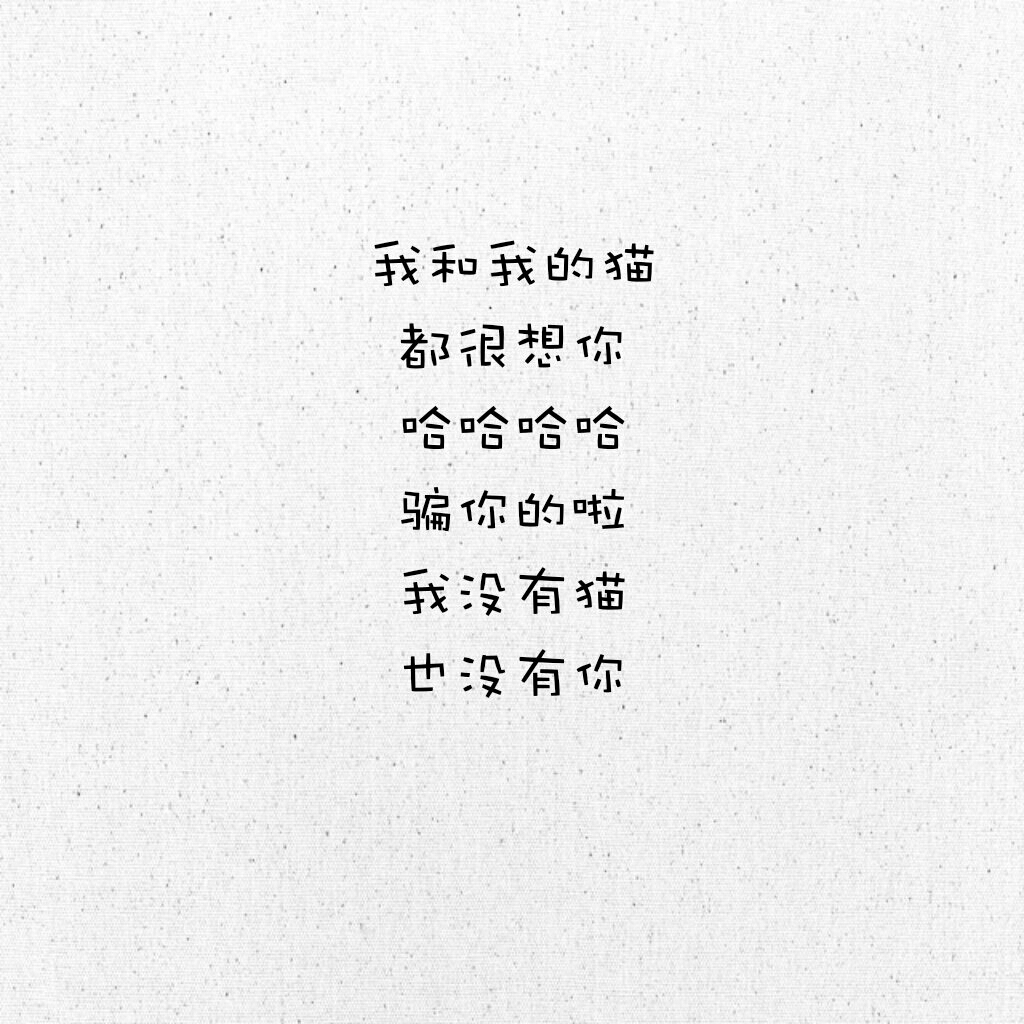 我和我的猫
都很想你
哈哈哈哈
骗你的啦
我没有猫
也没有你